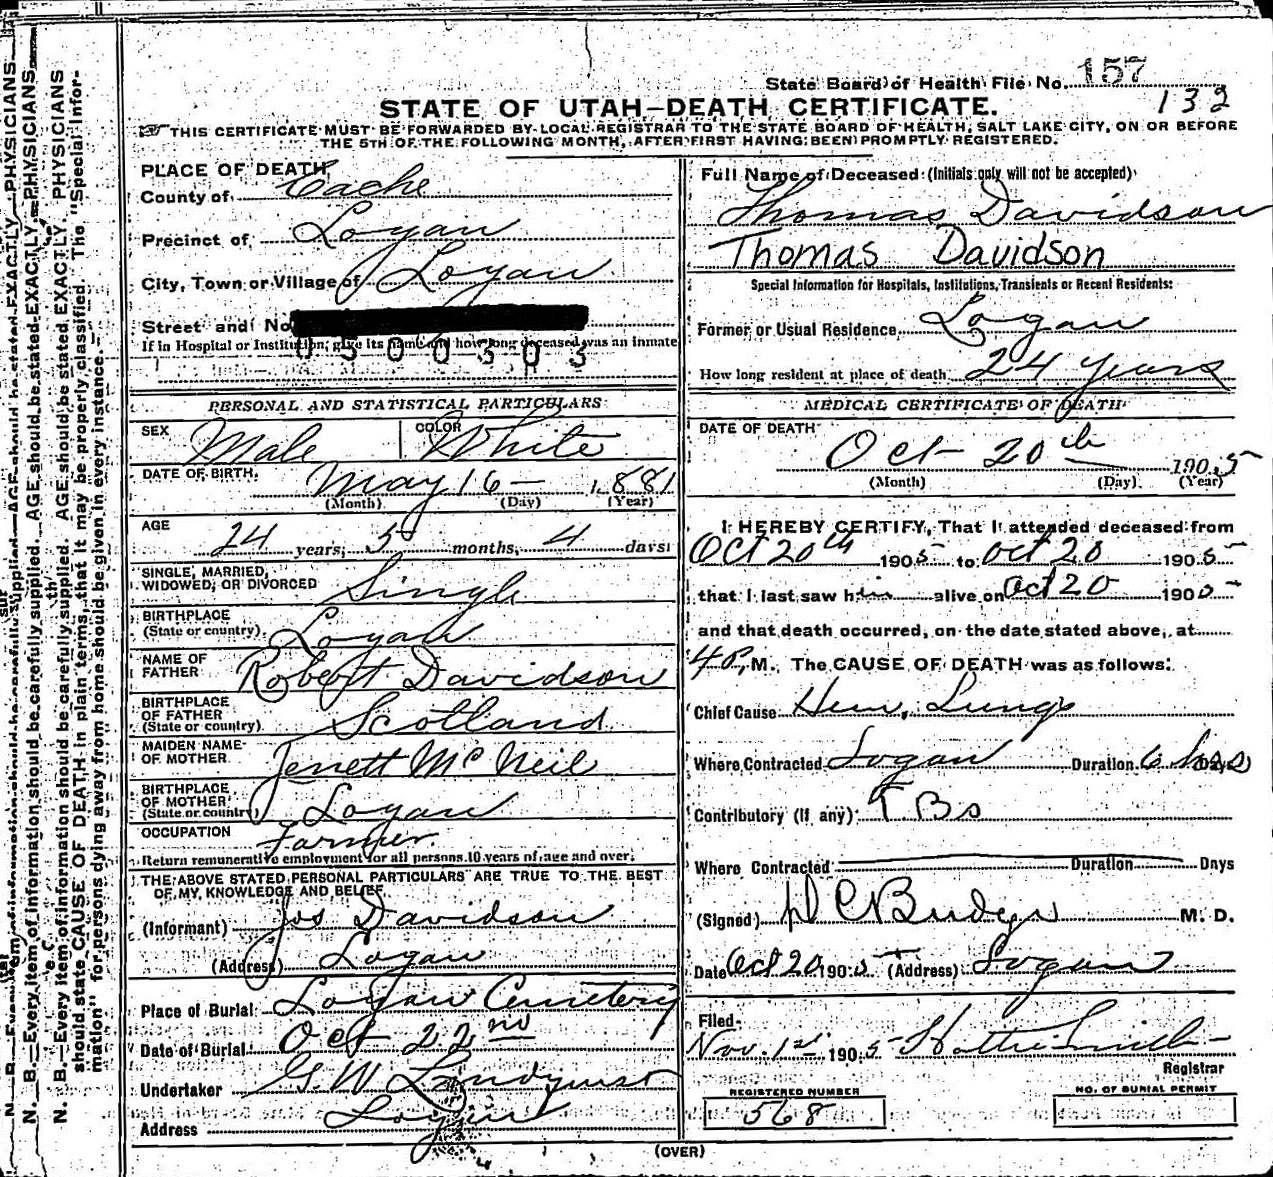 State Board of Health File No. 157
132
STATE OF UTAH—DEATH CERTIFICATE.
THIS CERTIFICATE MUST BE FORWARDED BY LOCAL REGISTRAR TO THE STATE BOARD OF HEALTH, SALT LAKE CITY, ON OR BEFORE
THE 5TH OF THE FOLLOWING MONTH, AFTER FIRST HAVING BEEN PROMPTLY REGISTERED.
PLACE OF DEATH
County of Cache
Precinct of Logan
City, Town or Village of Logan
Street and No.
If in Hospital or Institution, give its name and how long deceased was an inmate
0500303
PERSONAL AND STATISTICAL PARTICULARS
SEX Male COLOR White
DATE OF BIRTH. May 16 — 1881
(Month) (Day) (Year)
AGE 24 years, 5 months, 4 days
SINGLE, MARRIED,
WIDOWED, OR DIVORCED Single
BIRTHPLACE
(State or country). Logan
NAME OF
FATHER Robert Davidson
BIRTHPLACE
OF FATHER
(State or country) Scotland
MAIDEN NAME
OF MOTHER Jenett McNeil
BIRTHPLACE
OF MOTHER
(State or country) Logan
OCCUPATION Farmer.
Return remunerative employment for all persons 10 years of age and over.
THE ABOVE STATED PERSONAL PARTICULARS ARE TRUE TO THE BEST
OF MY KNOWLEDGE AND BELIEF
(Informant) Jos Davidson
(Address) Logan
Place of Burial Logan Cemetery
Date of Burial Oct 22nd
Undertaker G. W. Lindquist
Address Logan
Full Name of Deceased (Initials only will not be accepted)
Thomas Davidson
Thomas Davidson
Special Information for Hospitals, Institutions, Transients or Recent Residents:
Former or Usual Residence Logan
How long resident at place of death 24 years
MEDICAL CERTIFICATE OF DEATH
DATE OF DEATH
Oct 20th 1905
(Month) (Day) (Year)
I HEREBY CERTIFY, That I attended deceased from
Oct 20th 1905 to Oct 20 1905
that I last saw him alive on Oct 20 1905
and that death occurred, on the date stated above, at
4 P. M. The CAUSE OF DEATH was as follows:
Chief Cause Hem, Lungs
Where Contracted Logan Duration 6 hrs Days
Contributory (if any) T.Bs
Where Contracted Duration Days
(Signed) D C Budge M. D.
Date Oct 20 1905 (Address) Logan
Filed
Nov. 1st 1905 Hattie Smith
Registrar
REGISTERED NUMBER
568
NO. OF BURIAL PERMIT
(OVER)
N. B—Every item of information should be carefully supplied. AGE should be stated EXACTLY. PHYSICIANS
N. B—Every item of information should be carefully supplied. AGE should be stated EXACTLY. PHYSICIANS
should state CAUSE OF DEATH in plain terms, that it may be properly classified. The "Special Infor-
mation" for persons dying away from home should be given in every instance.